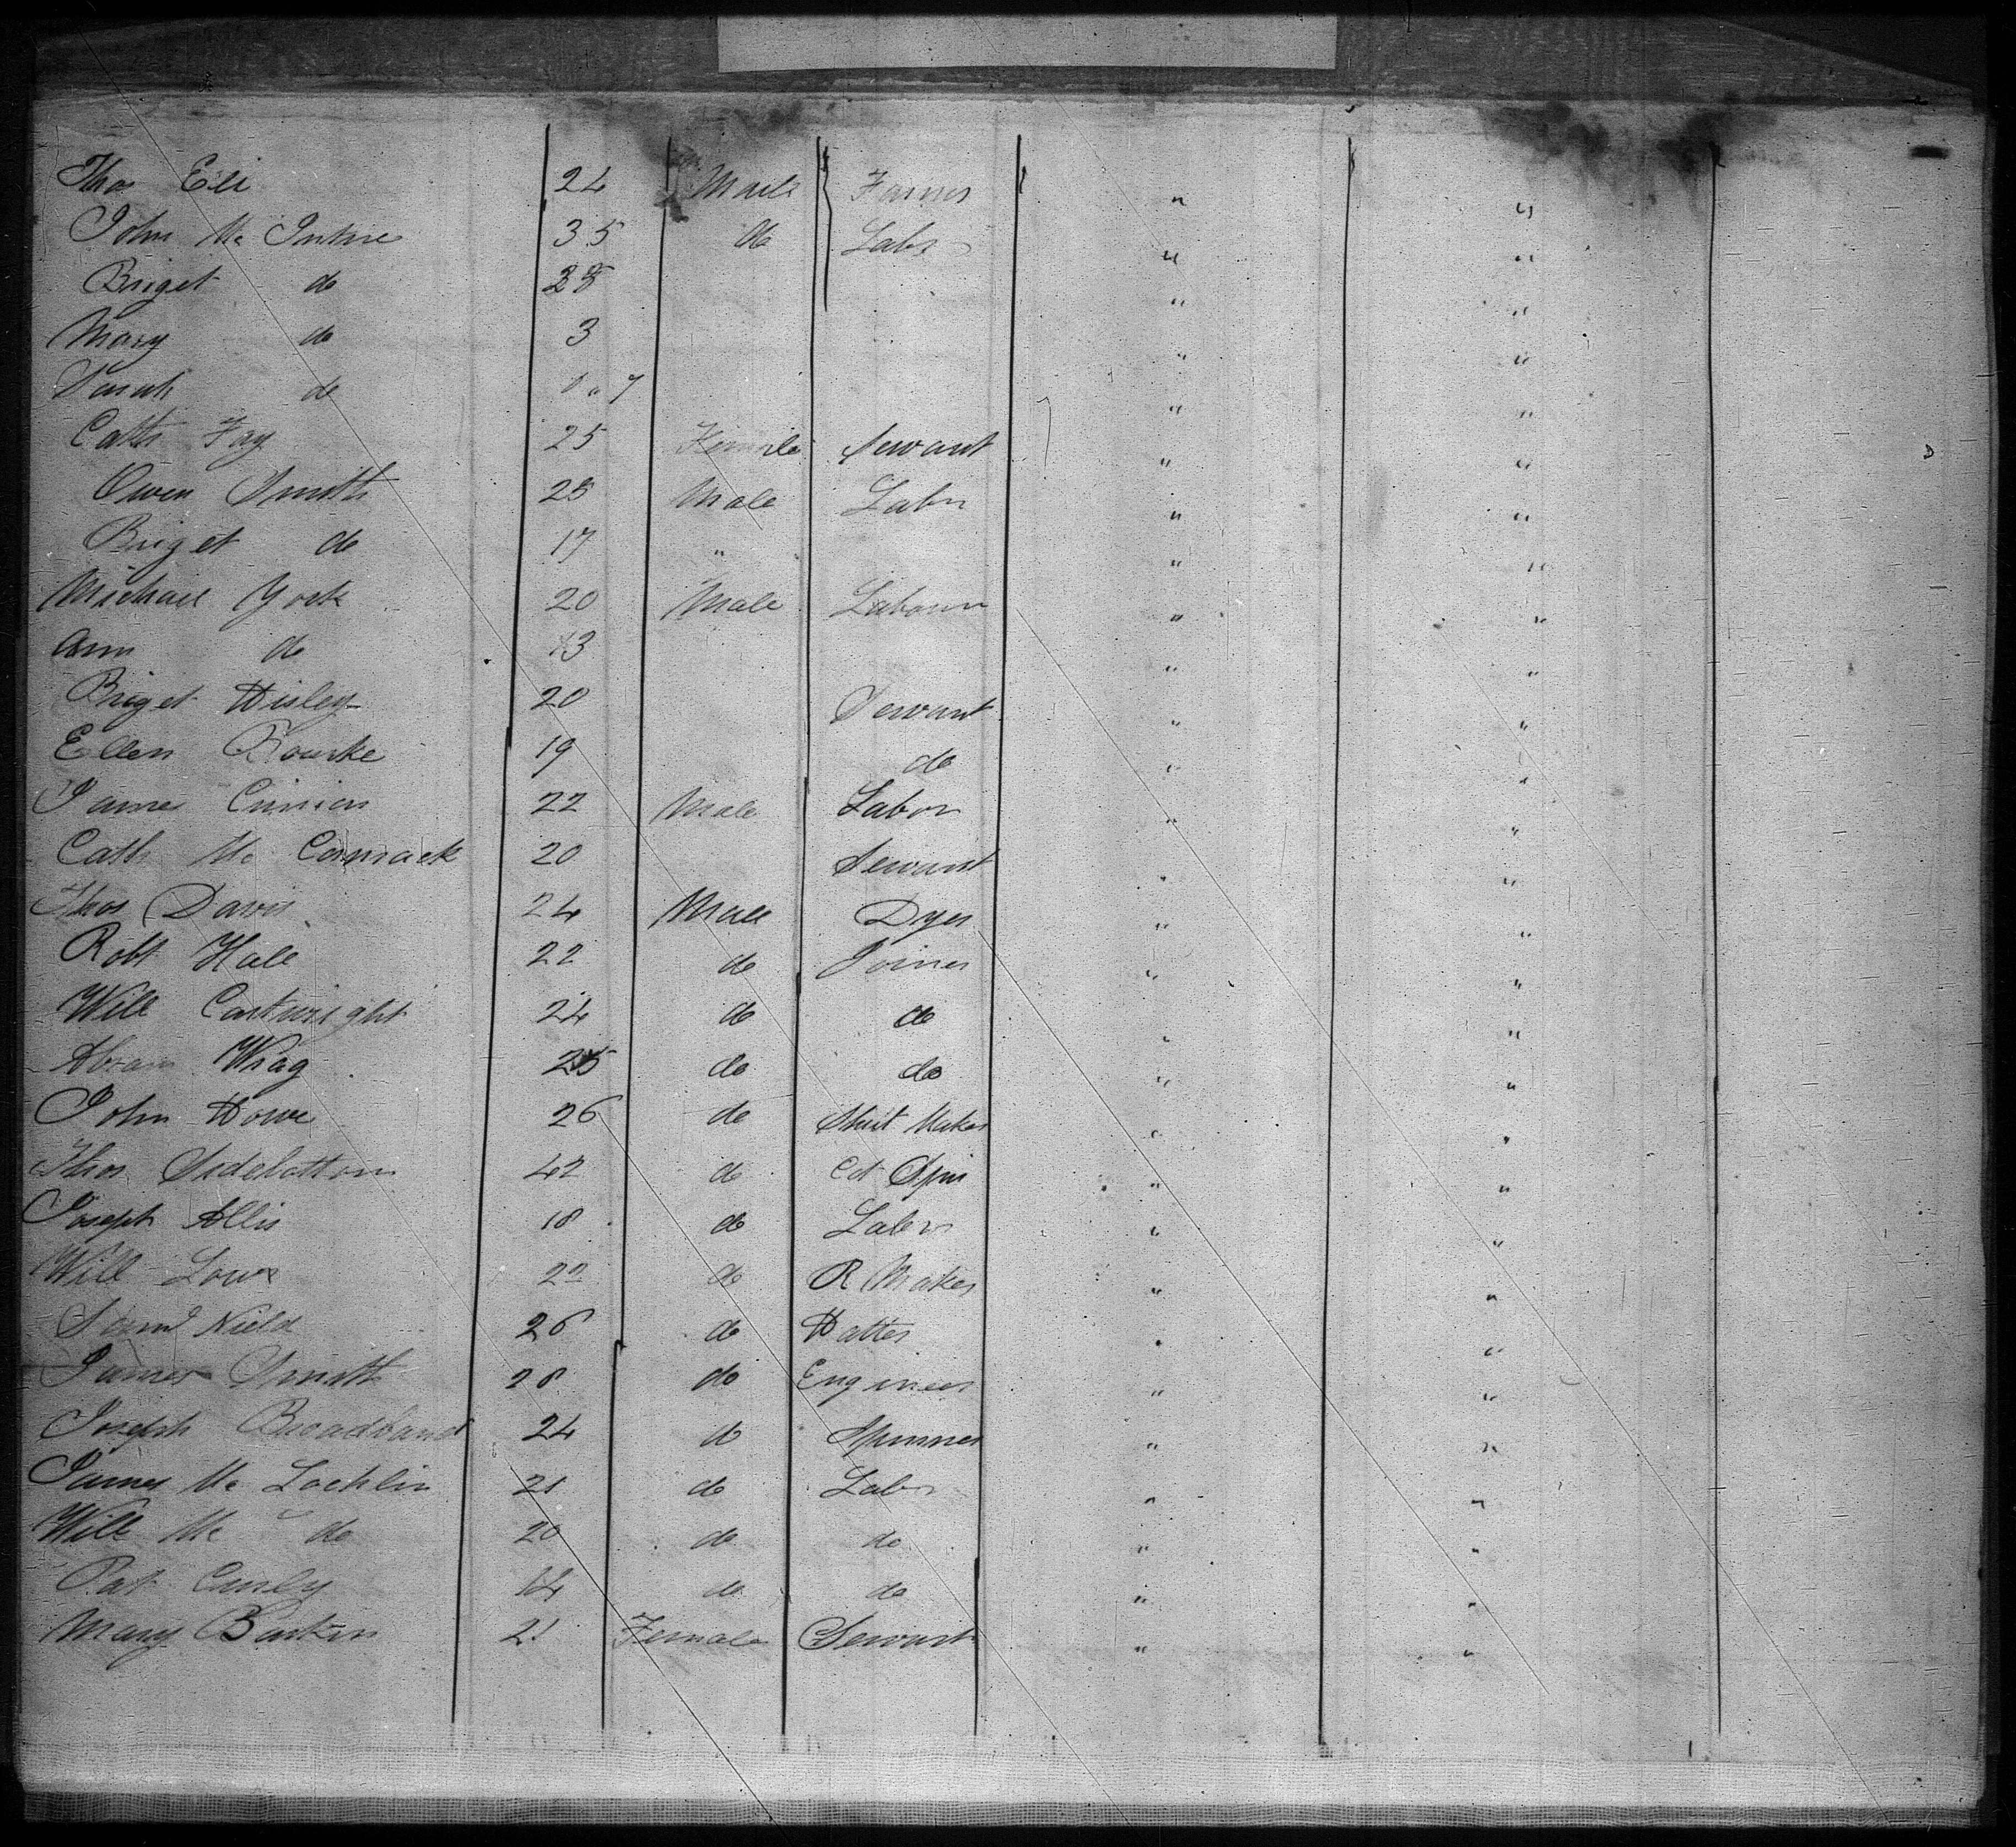 Thos Eli 24 Male Farmer " "
John Mc Intire 35 do Labr " "
Briget do 28 " "
Mary do 3 " "
Sarah do 0"7 " "
Cath Fay 25 Female Servant " "
Owen Smith 25 Male Labr " "
Briget do 17 " " "
Michael York 20 Male Labour " "
Ann do 13 " "
Briget Hisley 20 Servant " "
Ellen Rourke 19 do " "
James 22 Male Labor " "
Cath Mc Cormack 20 Servant " "
Thos Davis 24 Male Dyer " "
Robt Hall 22 do Joiner " "
Will Cartwright 24 do do " "
Abram Wrag 25 do do " "
John Howe 26 do Shirt Maker " "
Thos Sidebottom 42 do Cot Spin " "
Joseph Allis 18 do Labr " "
Will Lowe 22 do R Maker " "
Saml Nield 26 do Hatter " "
James Smith 28 do Engineer " "
Joseph Broadband 24 do Spinner " "
James Mc Lochlin 21 do Labr " "
Will Mc do 20 do do " "
Pat 14 do do " "
Mary 21 Female Servant " "